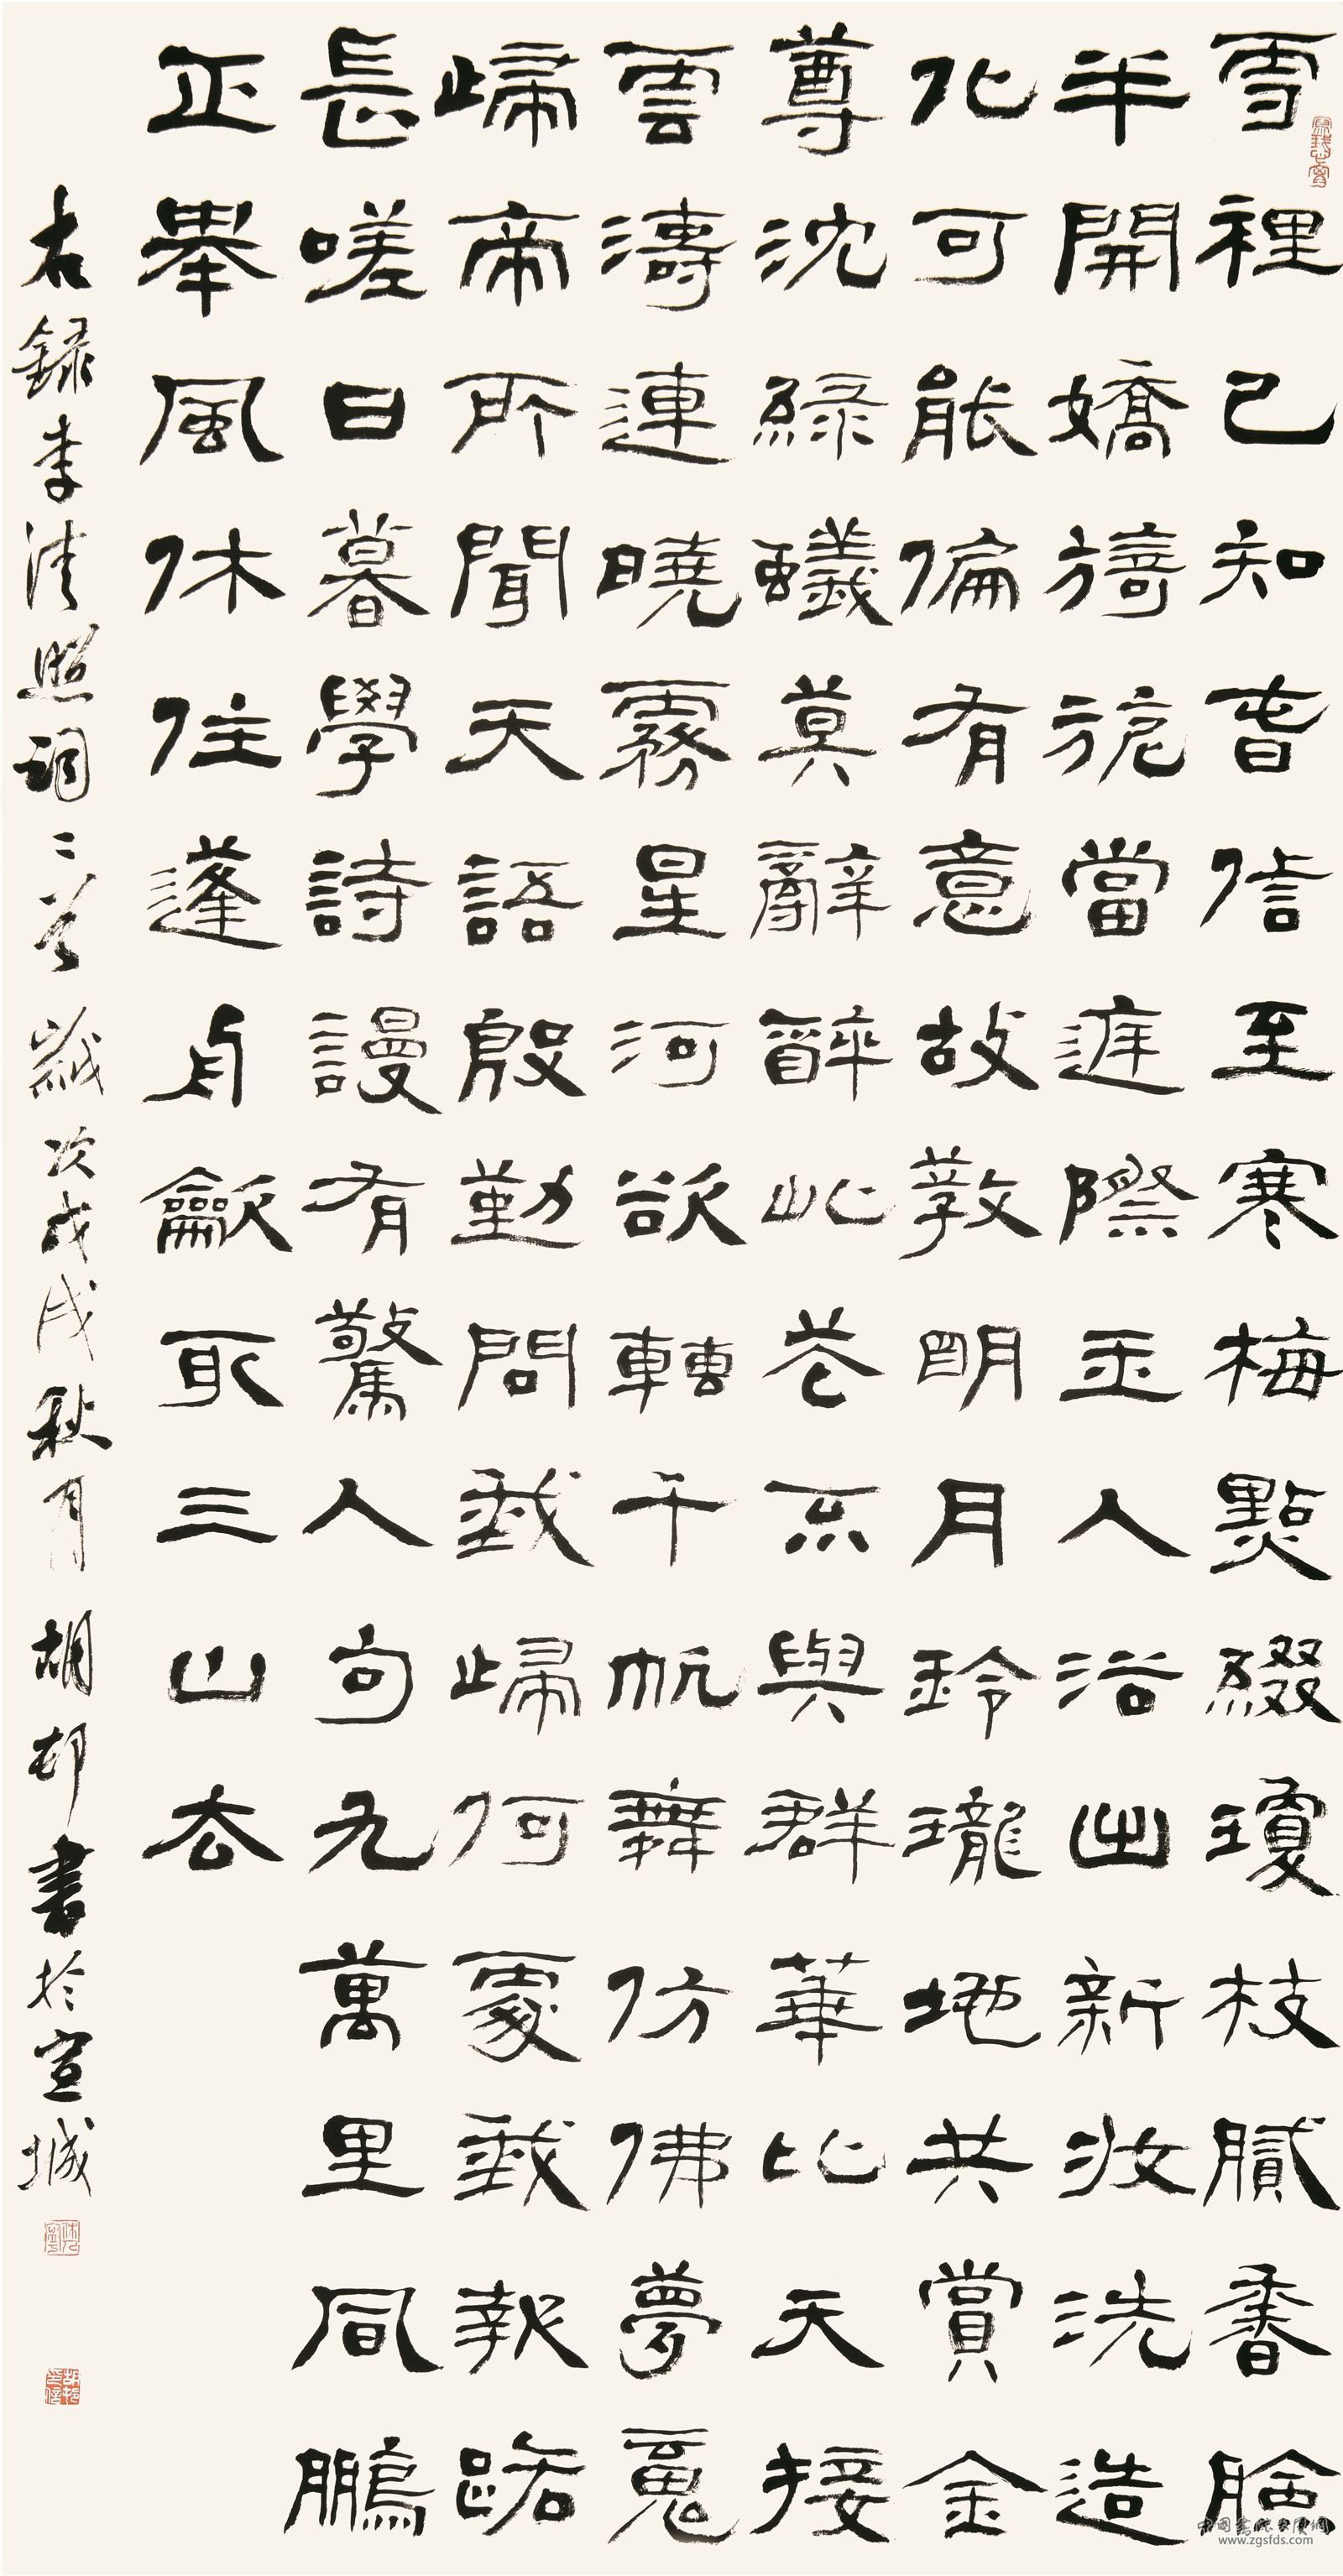 雪裡已知春信至寒梅點綴瓊枝膩香臉
半開嬌旖旎當庭際玉人浴出新妝洗造
化可能偏有意故教明月玲瓏地共賞金
尊沈綠蟻莫辭醉此花不與群華比天接
雲濤連曉霧星河欲轉千帆舞仿佛夢魂
歸帝所聞天語殷勤問我歸何處我報路
長嗟日暮學詩謾有驚人句九萬里風鵬
正舉風休住蓬舟吹取三山去
右錄李清照詞二首歲次戊戌秋月胡邨書於宣城
www.zgsfds.com